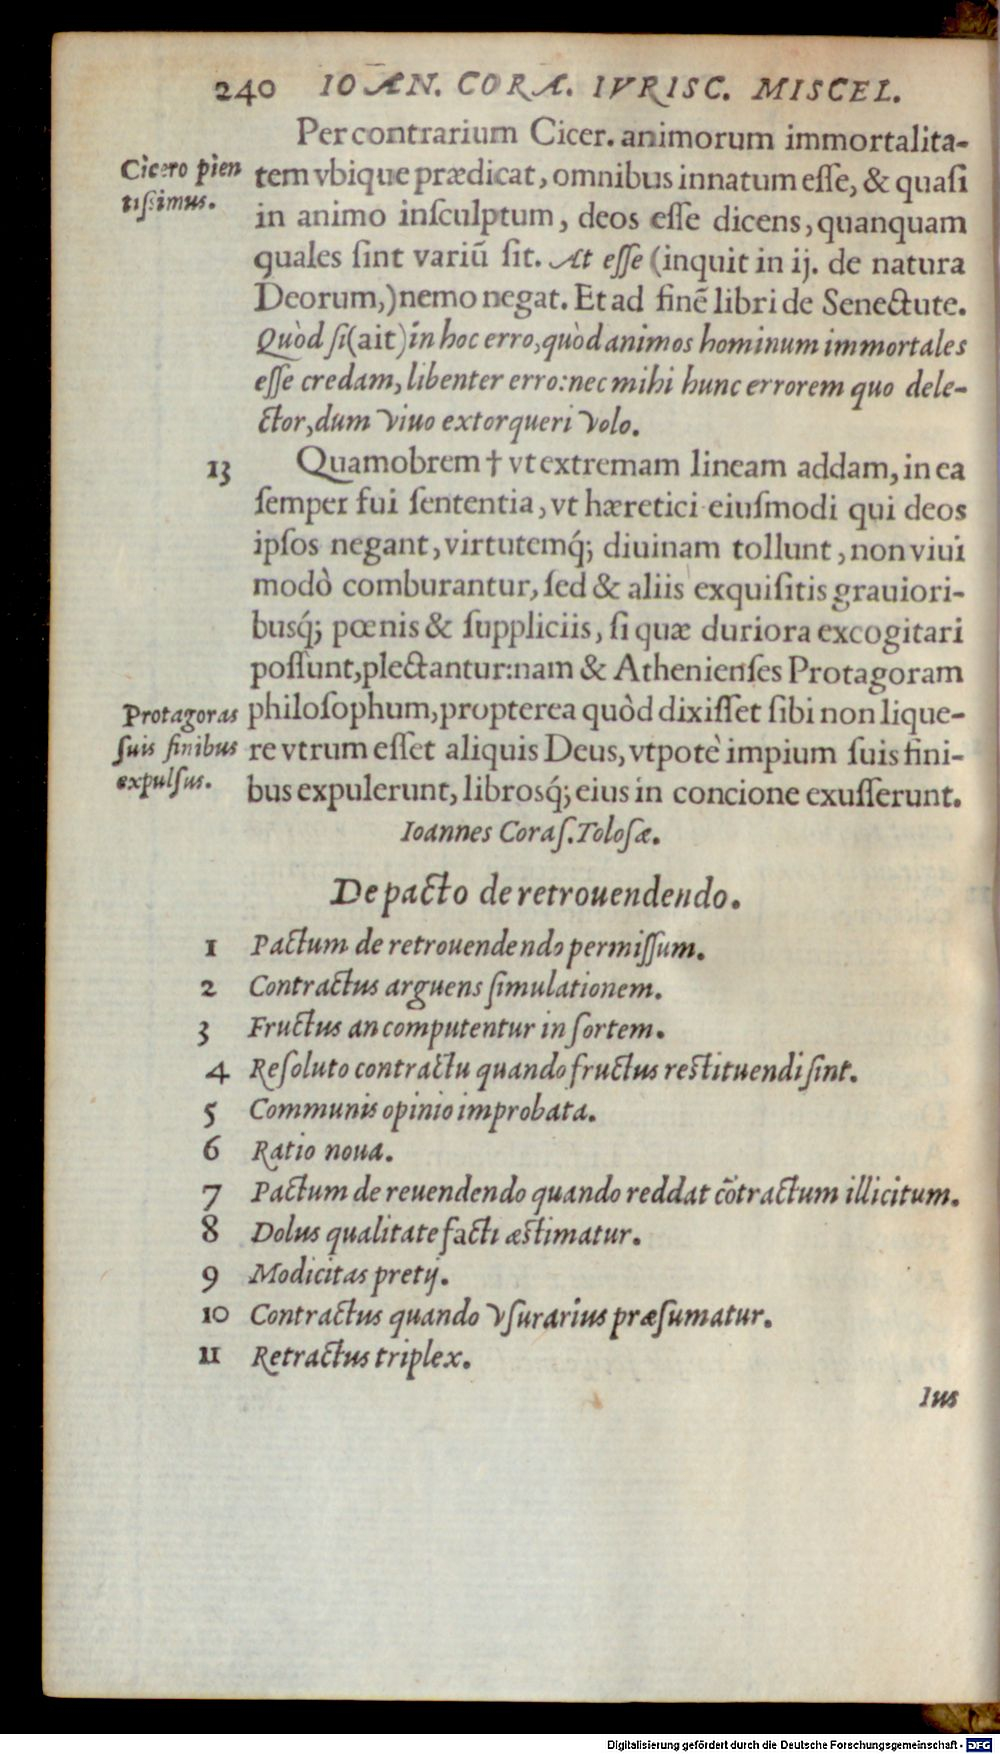 240 IOAN. CORA. IVRISC. MISCEL.
Per contrarium Cicer. animorum immortalita-
Cicero pien
tißimus.
tem vbique prædicat, omnibus innatum eſſe, & quaſi
in animo inſculptum, deos eſſe dicens, quanquam
quales ſint variũ ſit. At eſſe (inquit in ij. de natura
Deorum,) nemo negat. Et ad finẽ libri de Senectute.
Quòd ſi (ait) in hoc erro, quòd animos hominum immortales
eſſe credam, libenter erro: nec mihi hunc errorem quo dele-
ctor, dum viuo extorqueri volo.
13 Quamobrem † vt extremam lineam addam, in ea
ſemper fui ſententia, vt hæretici eiuſmodi qui deos
ipſos negant, virtutemq́; diuinam tollunt, non viui
modò comburantur, ſed & aliis exquiſitis grauiori-
busq́; pœnis & ſuppliciis, ſi quæ duriora excogitari
poſſunt, plectantur: nam & Athenienſes Protagoram
Protagoras
ſuis finibus
expulſus.
philoſophum, propterea quòd dixiſſet ſibi non lique-
re vtrum eſſet aliquis Deus, vtpotè impium ſuis fini-
bus expulerunt, librosq́; eius in concione exuſſerunt.
Ioannes Coraſ. Toloſæ.
De pacto de retrouendendo.
1 Pactum de retrouendendo permiſſum.
2 Contractus arguens ſimulationem.
3 Fructus an computentur in ſortem.
4 Reſoluto contractu quando fructus reſtituendi ſint.
5 Communis opinio improbata.
6 Ratio noua.
7 Pactum de reuendendo quando reddat cõtractum illicitum.
8 Dolus qualitate facti æſtimatur.
9 Modicitas pretij.
10 Contractus quando vſurarius præſumatur.
11 Retractus triplex.
Ius
Digitalisierung gefördert durch die Deutsche Forschungsgemeinschaft - DFG